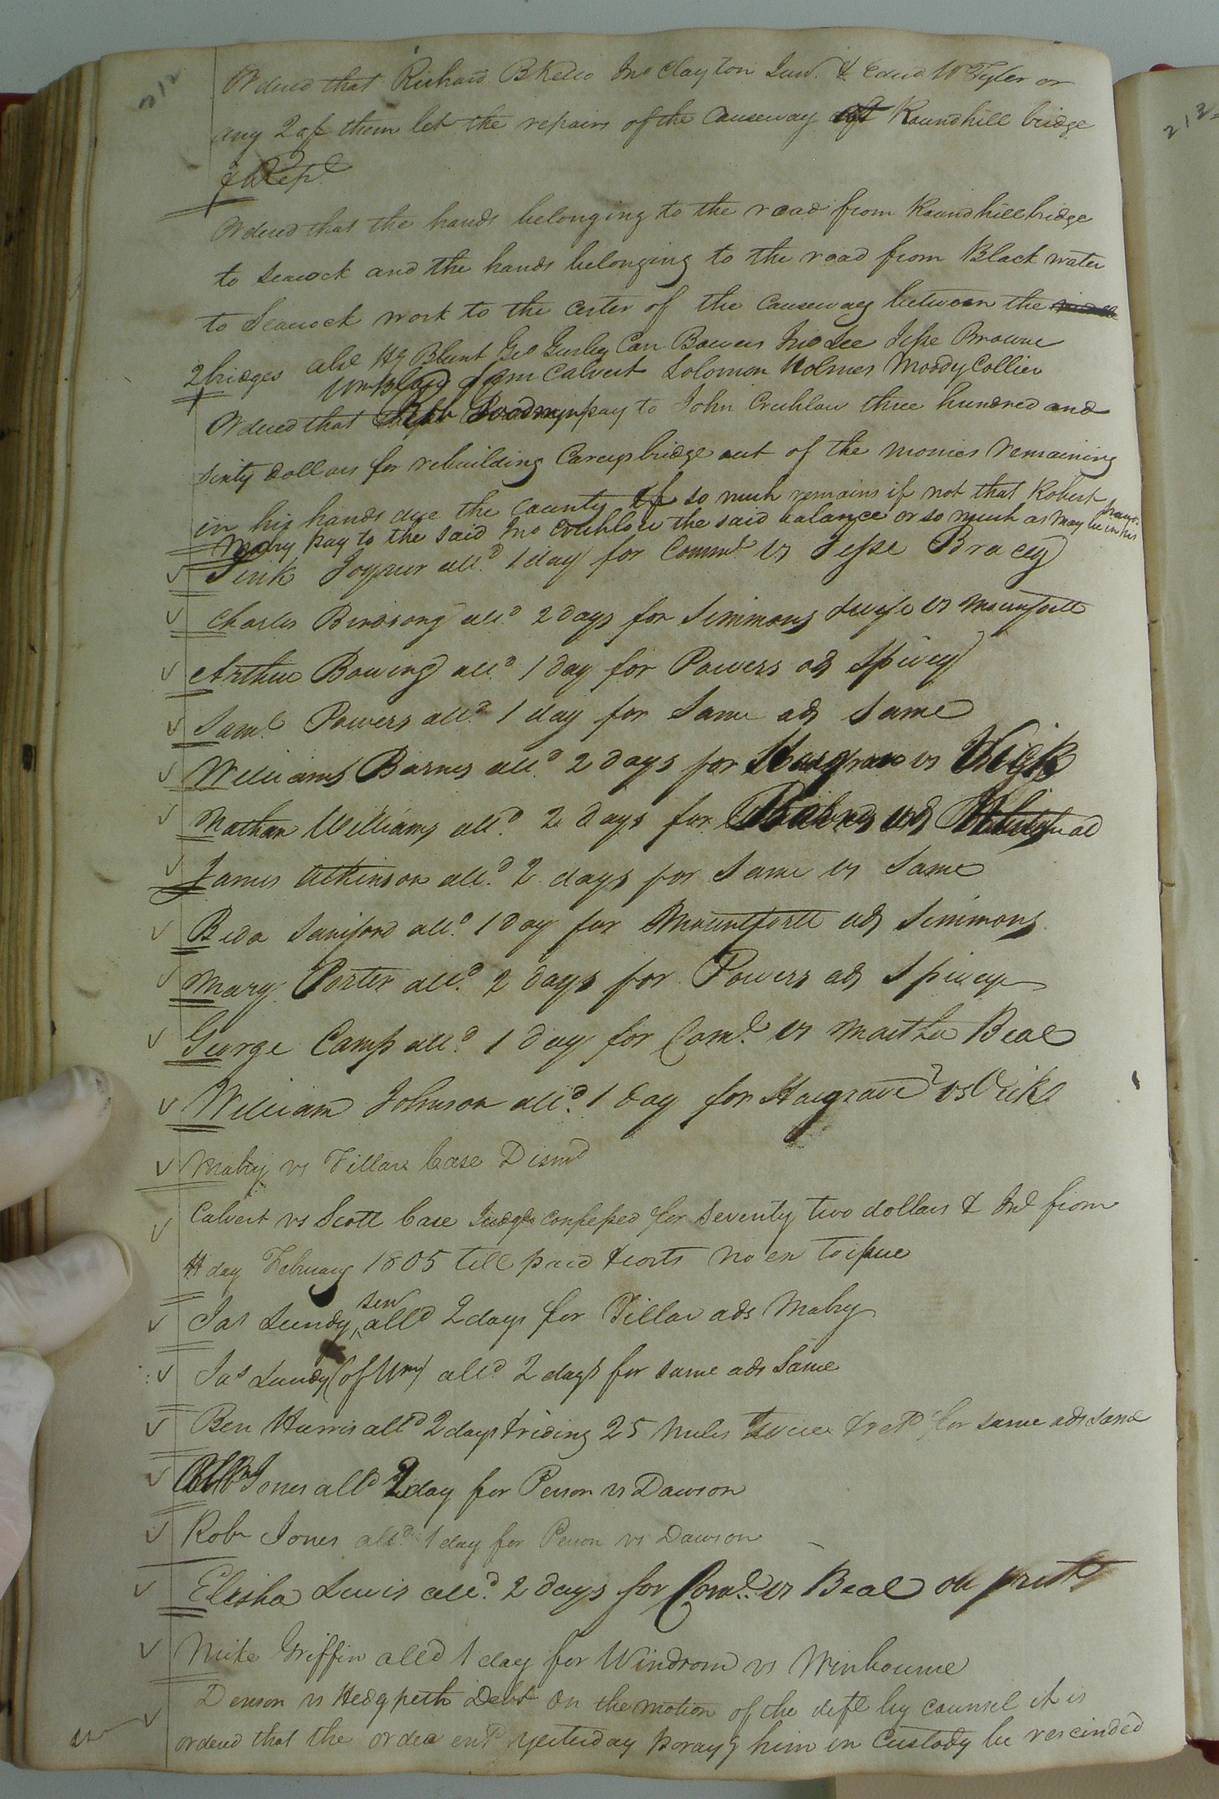 212
Ordered that Richard Jno Clayton Junr. & Edwd W Tyler or
any 2 of them let the repairs of the Causeway Roundhill bridge
Ordered that the hands belonging to the road from Roundhill bridge
213
to Seacock and the hands belonging to the road from Black water
to Seacock work to the center of the Causeway between the
2 bridges also Hy Blunt Geo Gurley Carr Bowers Jno Lee Jesse Browne
Calvert Solomon Holmes Moody Collier
Ordered that pay to John Crichlow three hundred and
sixty dollars for rebuilding Careys bridge out of the monies remaining
in his hands due the County If so much remains if not that Robert
Mabry pay to the said Jno Crichlow the said balance or so much as may be in his
hands
Joyner alld. 1 day for Commo vs Jesse Bracey
Charles Birdsong alld 2 days for Simmons & wife vs Mountfortt
Arthur Bowing alld 1 day for Powers ads Spivey
Saml Powers alld 1 day for Same ads Same
Williams Barnes alld 2 days for Hargrave vs Vick
Nathan Williams alld. 2 days for
James Atkinson alld. 2 days for Same vs Same
alld. 1 day for Mountfortt ads Simmons
Mary Porter alld. 2 days for Powers ads Spivey
George Camp alld. 1 day for Comd. vs Martha Beal
William Johnson alld. 1 day for Hargrave vs Vick
Mabry vs Tillar Case Dismd
Calvert vs Scott Case Judgt confessed for Seventy two dollars & Int from
day February 1805 till paid & costs no en to issue
Jas Lundy senr alld 2 days for Tillar ads Mabry
Jas Lundy (of Wm) alld 2 days for same ads Same
Ben Harris alld 2 days & riding 25 Miles twice & retd for same ads Same
Jones alld day for Person vs Dawson
Robt Jones alld 1 day for Person vs Dawson
Elisha Lewis alld. 2 days for Comd. vs Beal
Mike Griffin alld 1 day for Windrom vs Winbourne
Denson vs Hedgpeth Debt On the motion of the deft by counsel it is
ordered that the order entd yesterday praying him in Custody be rescinded